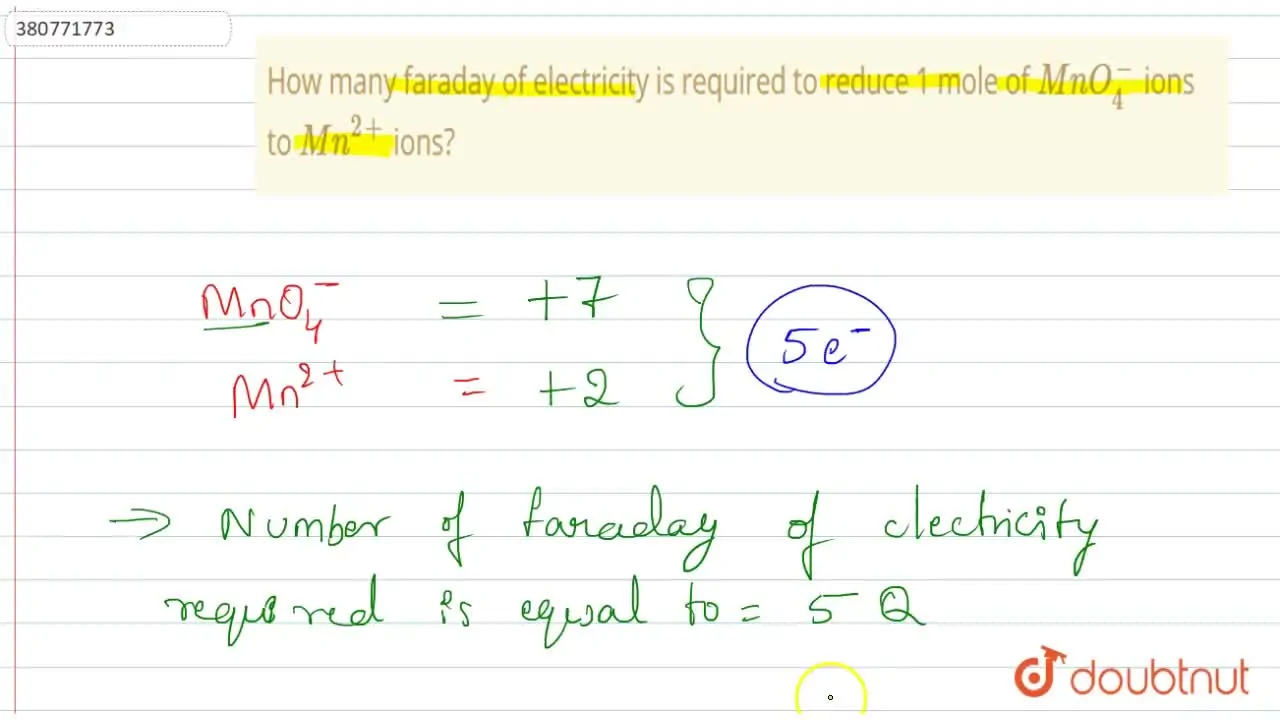 380771773
How many faraday of electricity is required to reduce 1 mole of MnO₄⁻ ions
to Mn²⁺ ions?
MnO₄⁻ = +7
5e⁻
Mn²⁺ = +2
→ Number of faraday of electricity
required is equal to = 5 Q
doubtnut